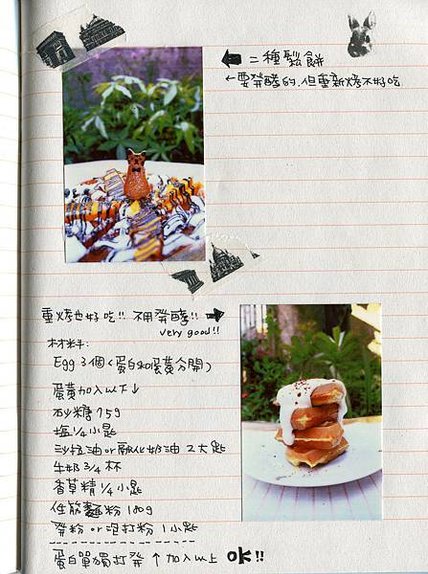 二種鬆餅
←要發酵的,但重新烤不好吃
重烤也好吃!! 不用發酵!!
very good!!
材料:
Egg 3個(蛋白和蛋黃分開)
蛋黃加入以下↓
砂糖 75g
塩 1/4 小匙
沙拉油 or 融化奶油 2大匙
牛奶 3/4 杯
香草精 1/4 小匙
低筋麵粉 180g
發粉 or 泡打粉 1小匙
蛋白單獨打發 ↑ 加入以上 OK!!